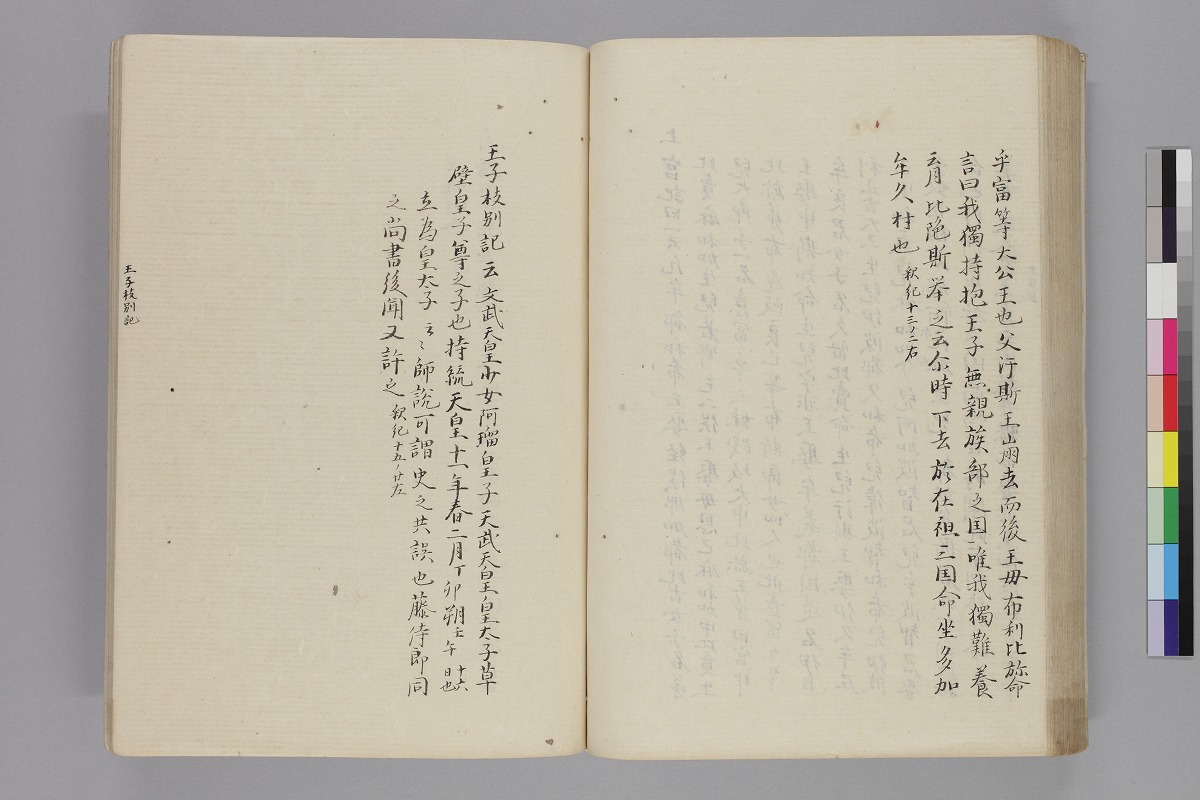 乎富等大公王也父汙斯王崩去而後王母布利比弥命
言曰我獨持抱王子無親族部之国唯我獨難養
云月比陁斯奉之云尒時下去於在祖三国命坐多加
牟久村也 釈紀十三ノ二右
王子枝別記云文武天皇少女阿瑠皇子天武天皇皇太子草
壁皇子尊之子也持統天皇十一年春二月丁卯朔壬午十六日也
立為皇太子云々師說可謂史之共誤也藤侍郎同
之尚書後聞又許之 釈紀十五ノ廿左
王子枝別記